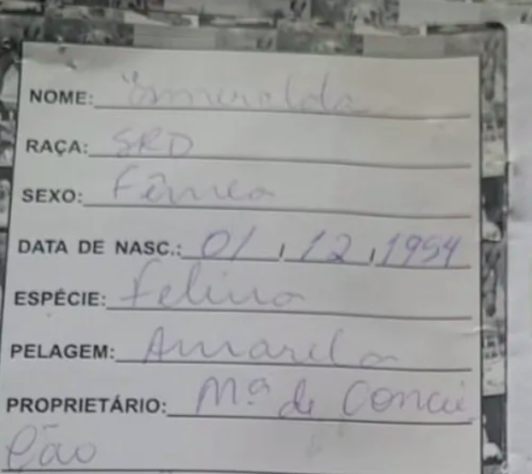 NOME: Esmeralda
RAÇA: SRD
SEXO: Fêmea
DATA DE NASC.: 01/12/1954
ESPÉCIE: Felina
PELAGEM: Amarela
PROPRIETÁRIO: Mª da Concei
ção